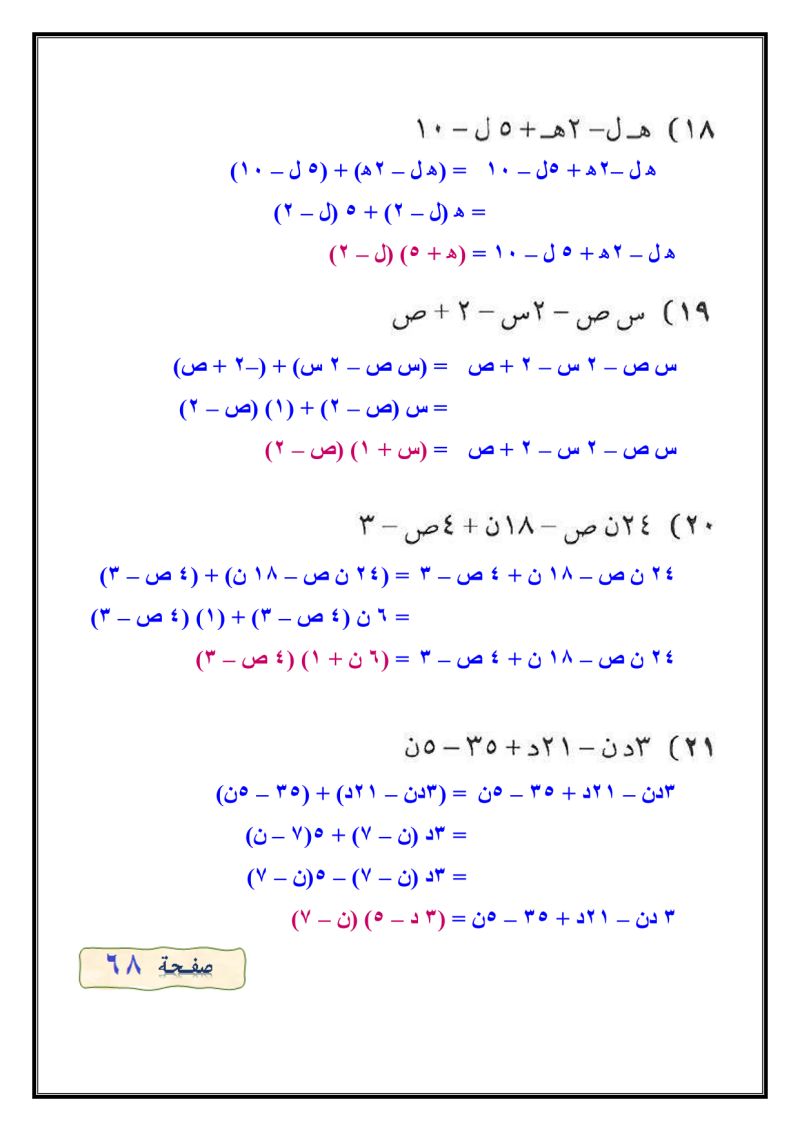 ١٨) هـ ل – ٢هـ + ٥ ل – ١٠
ه ل –٢ه + ٥ل – ١٠ = (ه ل – ٢ه) + (٥ ل – ١٠)
= ه (ل – ٢) + ٥ (ل – ٢)
ه ل – ٢ه + ٥ ل – ١٠ = (ه + ٥) (ل – ٢)
١٩) س ص – ٢س – ٢ + ص
س ص – ٢ س – ٢ + ص = (س ص – ٢ س) + (–٢ + ص)
= س (ص – ٢) + (١) (ص – ٢)
س ص – ٢ س – ٢ + ص = (س + ١) (ص – ٢)
٢٠) ٢٤ن ص – ١٨ن + ٤ص – ٣
٢٤ ن ص – ١٨ ن + ٤ ص – ٣ = (٢٤ ن ص – ١٨ ن) + (٤ ص – ٣)
= ٦ ن (٤ ص – ٣) + (١) (٤ ص – ٣)
٢٤ ن ص – ١٨ ن + ٤ ص – ٣ = (٦ ن + ١) (٤ ص – ٣)
٢١) ٣د ن – ٢١د + ٣٥ – ٥ن
٣دن – ٢١د + ٣٥ – ٥ن = (٣دن – ٢١د) + (٣٥ – ٥ن)
= ٣د (ن – ٧) + ٥(٧ – ن)
= ٣د (ن – ٧) – ٥(ن – ٧)
٣ دن – ٢١د + ٣٥ – ٥ن = (٣ د – ٥) (ن – ٧)
صفحة ٦٨